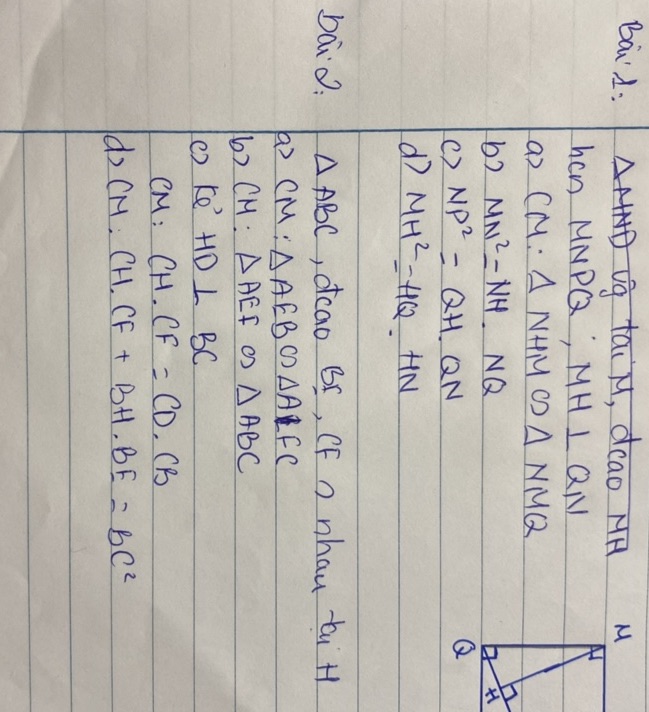 Bài 1: ΔMND vg tại M, đcao MH
hcn MNPQ; MH ⊥ QN
a> CM: Δ NHM ∽ Δ NMQ
b> MN² = NH. NQ
c> NP² = QH. QN
d> MH² = HQ. HN
Bài 2: Δ ABC, đcao BE, CF ∩ nhau tại H
a> CM: ΔAEB ∽ ΔAFC
b> CM: ΔAEF ∽ ΔABC
c> Kẻ HD ⊥ BC
CM: CH.CF = CD.CB
d> CM: CH.CF + BH.BE = BC²
M
Q
H